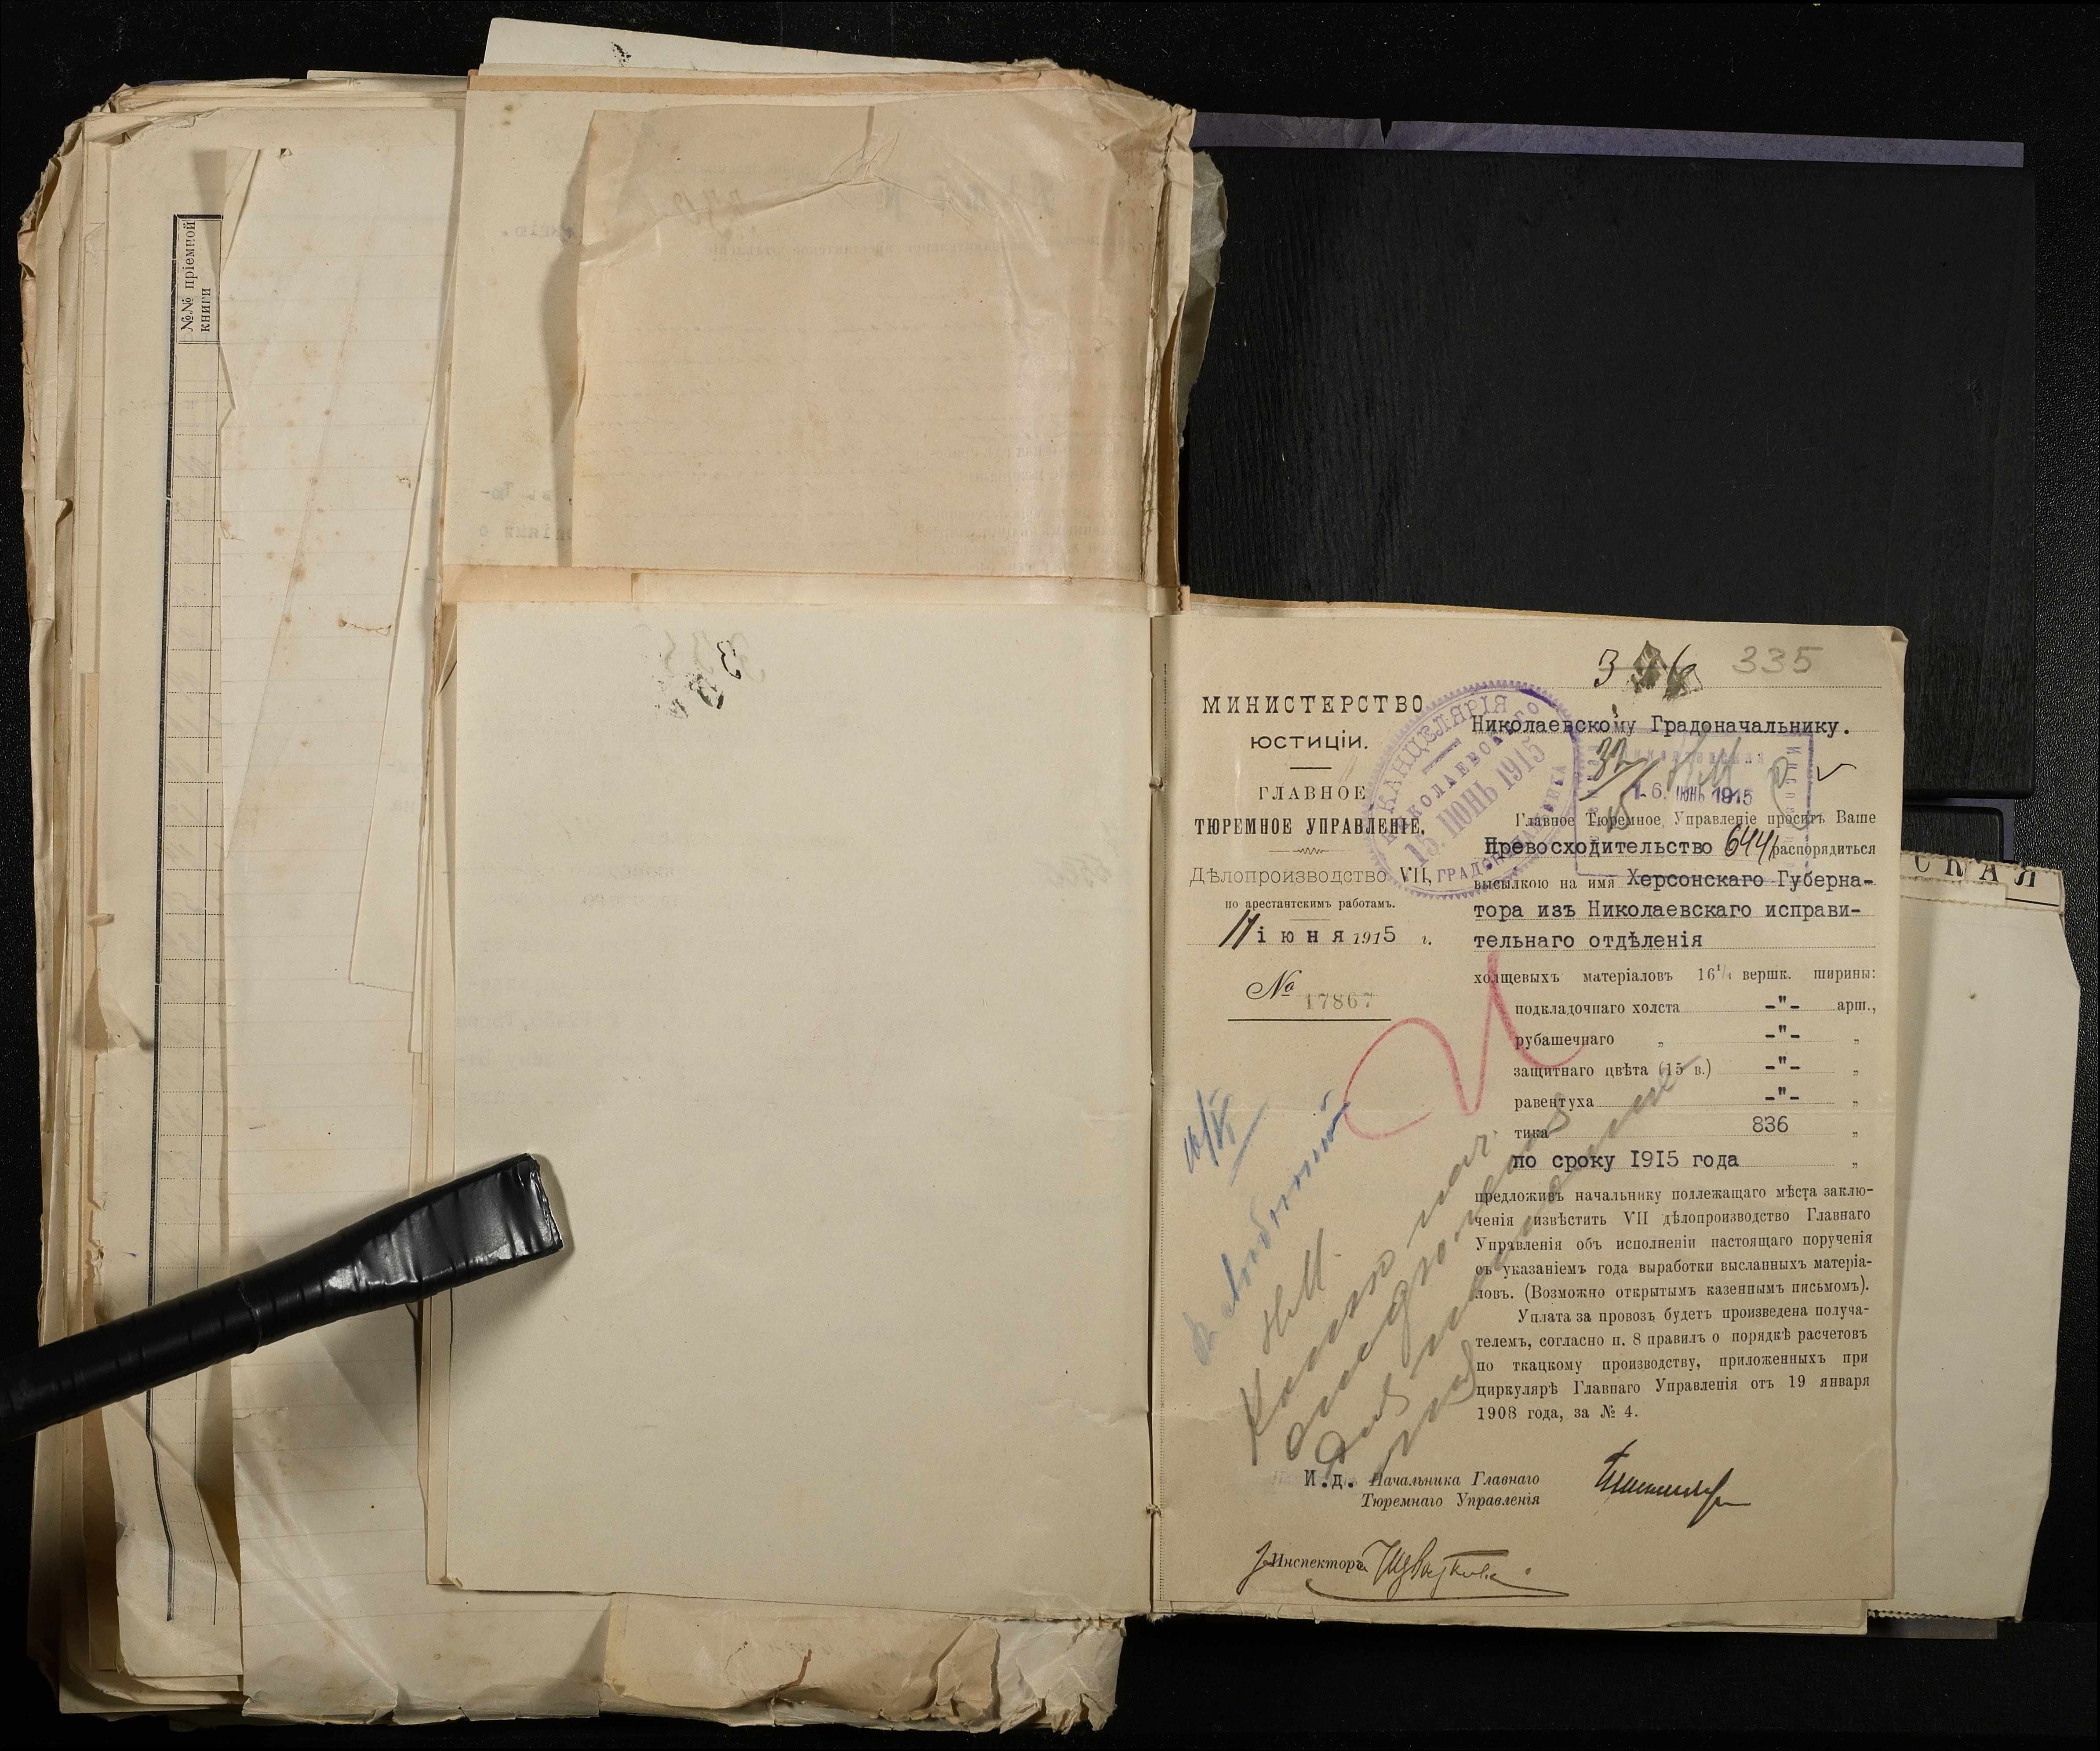 №№ пріемной
книги
335
МИНИСТЕРСТВО
ЮСТИЦІИ.
ГЛАВНОЕ
ТЮРЕМНОЕ УПРАВЛЕНІЕ.
Дѣлопроизводство VII,
по арестантскимъ работамъ.
11 іюня 1915 г.
№ 17867
КАНЦЕЛЯРІЯ
НИКОЛАЕВСКОГО
15. ІЮНЬ 1915
ГРАДОНАЧАЛЬНИКА
Николаевскому Градоначальнику.
16. ІЮНЬ 1915
Главное Тюремное Управленіе проситъ Ваше
Превосходительство 6441 распорядиться
высылкою на имя Херсонскаго Губерна-
тора изъ Николаевскаго исправи-
тельнаго отдѣленія
холщевыхъ матеріаловъ 16¹/₄ вершк. ширины:
подкладочнаго холста -"- арш.,
рубашечнаго „ -"- „
защитнаго цвѣта (15 в.) -"- „
равентуха -"- „
тика 836 „
по сроку 1915 года „
предложивъ начальнику подлежащаго мѣста заклю-
ченія извѣстить VII дѣлопроизводство Главнаго
Управленія объ исполненіи настоящаго порученія
съ указаніемъ года выработки высланныхъ матеріа-
ловъ. (Возможно открытымъ казеннымъ письмомъ).
Уплата за провозъ будетъ произведена получа-
телемъ, согласно п. 8 правилъ о порядкѣ расчетовъ
по ткацкому производству, приложенныхъ при
циркулярѣ Главнаго Управленія отъ 19 января
1908 года, за № 4.
И.д. Начальника Главнаго
Тюремнаго Управленія
Инспектора
СКАЯ